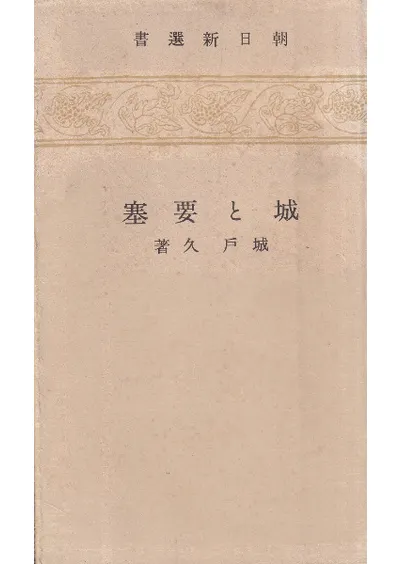 朝日新選書
城と要塞
城戸久著